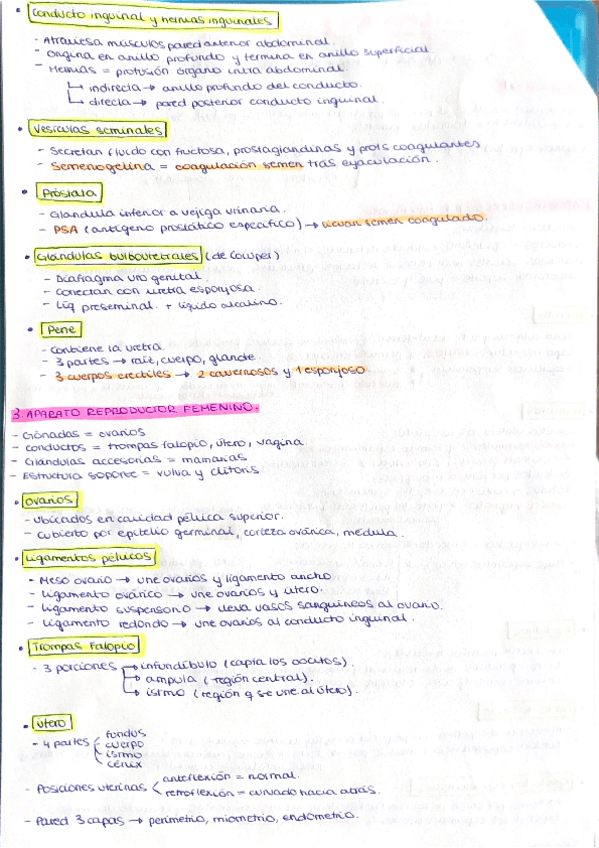 • Conducto inguinal y hernias inguinales
- Atraviesa músculos pared anterior abdominal.
- Origina en anillo profundo y termina en anillo superficial.
- Hernias = protusión órgano intra abdominal.
↳ indirecta → anillo profundo del conducto.
↳ directa → pared posterior conducto inguinal.
• Vesículas seminales
- Secretan fluido con fructosa, prostaglandinas y prots coagulantes
- Semenogelina = coagulación semen tras eyaculación.
• Próstata
- Glándula inferior a vejiga urinaria.
- PSA (antígeno prostático específico) → licuan semen coagulado.
• Glándulas bulbouretrales (de Cowper)
- Diafragma uro genital.
- Conectan con uretra esponjosa.
- Líq preseminal. + líquido alcalino.
• Pene
- Contiene la uretra.
- 3 partes → raíz, cuerpo, glande.
- 3 cuerpos eréctiles → 2 cavernosos y 1 esponjoso.
3. APARATO REPRODUCTOR FEMENINO.
- Gónadas = ovarios
- Conductos = trompas falopio, útero, vagina.
- Glándulas accesorias = mamarias
- Estructura soporte = vulva y clítoris
• Ovarios
- Ubicados en cavidad pélvica superior.
- Cubierto por epitelio germinal, corteza ovárica, médula.
• Ligamentos pélvicos
- Meso ovario → une ovarios y ligamento ancho.
- Ligamento ovárico → une ovarios y útero.
- Ligamento suspensorio → lleva vasos sanguíneos al ovario.
- Ligamento redondo → une ovarios al conducto inguinal.
• Trompas Falopio
- 3 porciones → infundíbulo (capta los oocitos).
→ ampula (región central).
→ ismo (región q se une al útero).
• Útero
- 4 partes fundus
cuerpo
ismo
cérvix
- Posiciones uterinas anteflexión = normal.
retroflexión = curvado hacia atrás.
- Pared 3 capas → perimetrio, miometrio, endometrio.